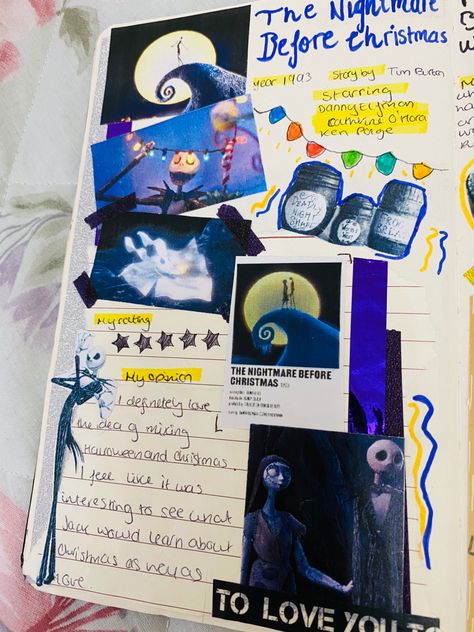 The Nightmare
Before Christmas
year 1993 Story by Tim Burton
Starring
Danny Elfman
Catherine O'Hara
Ken Page
DEADLY
NIGHT
SHADE
FROG'S
BREATH
My rating
THE NIGHTMARE BEFORE
CHRISTMAS 1993
My opinion
I definitely love
the idea of mixing
Halloween and Christmas.
I feel like it was
interesting to see what
Jack would learn about
Christmas as well as
love
TO LOVE YOU TO